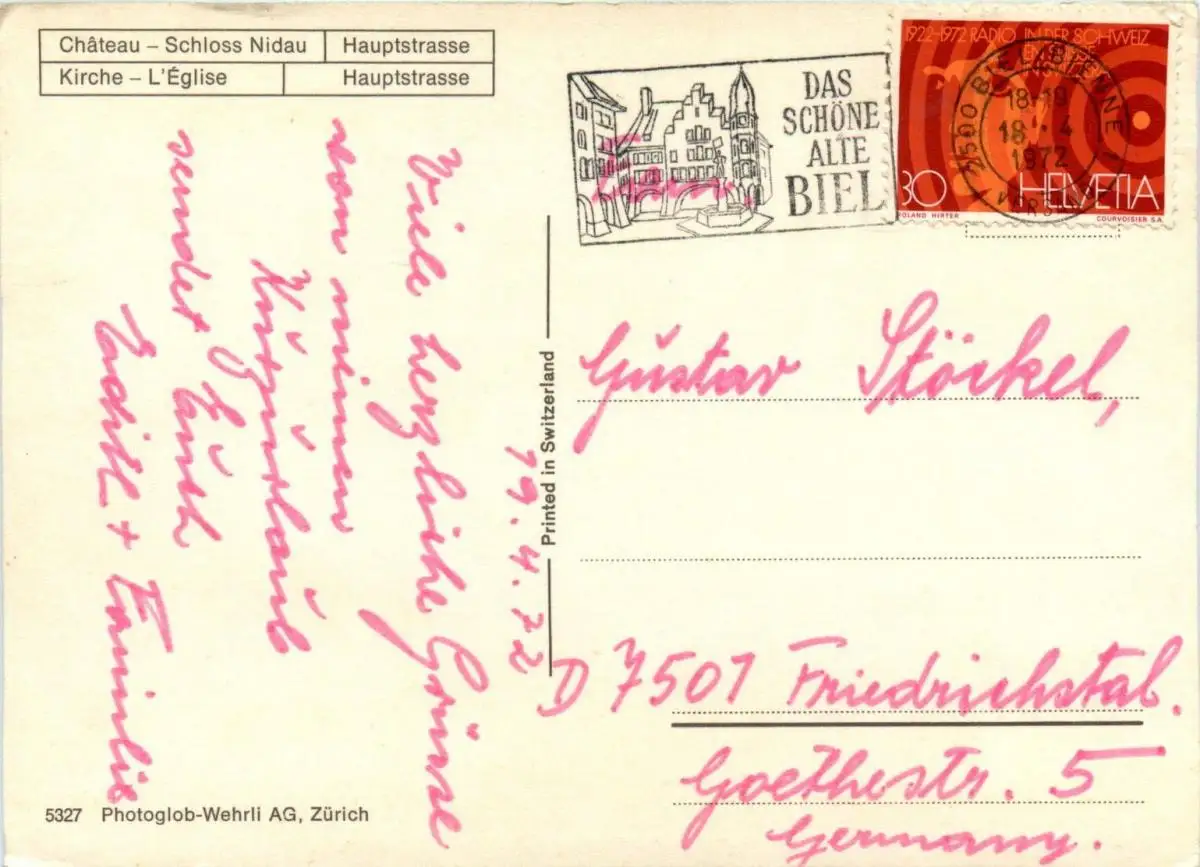 Château – Schloss Nidau Hauptstrasse
Kirche – L'Église Hauptstrasse
DAS
SCHÖNE
ALTE
BIEL
1922-1972 RADIO IN DER SCHWEIZ
2500 BIEL-BIENNE 1
18-19
18.4
1972
30 HELVETIA
ROLAND HIRTER COURVOISIER S.A.
19.4.72
Viele herzliche Grüsse
von meinem
Kurzurlaub
sendet Euch
Edith + Familie
Printed in Switzerland
Gustav Stöckel,
D 7501 Friedrichstal.
Goethestr. 5
Germany.
5327 Photoglob-Wehrli AG, Zürich